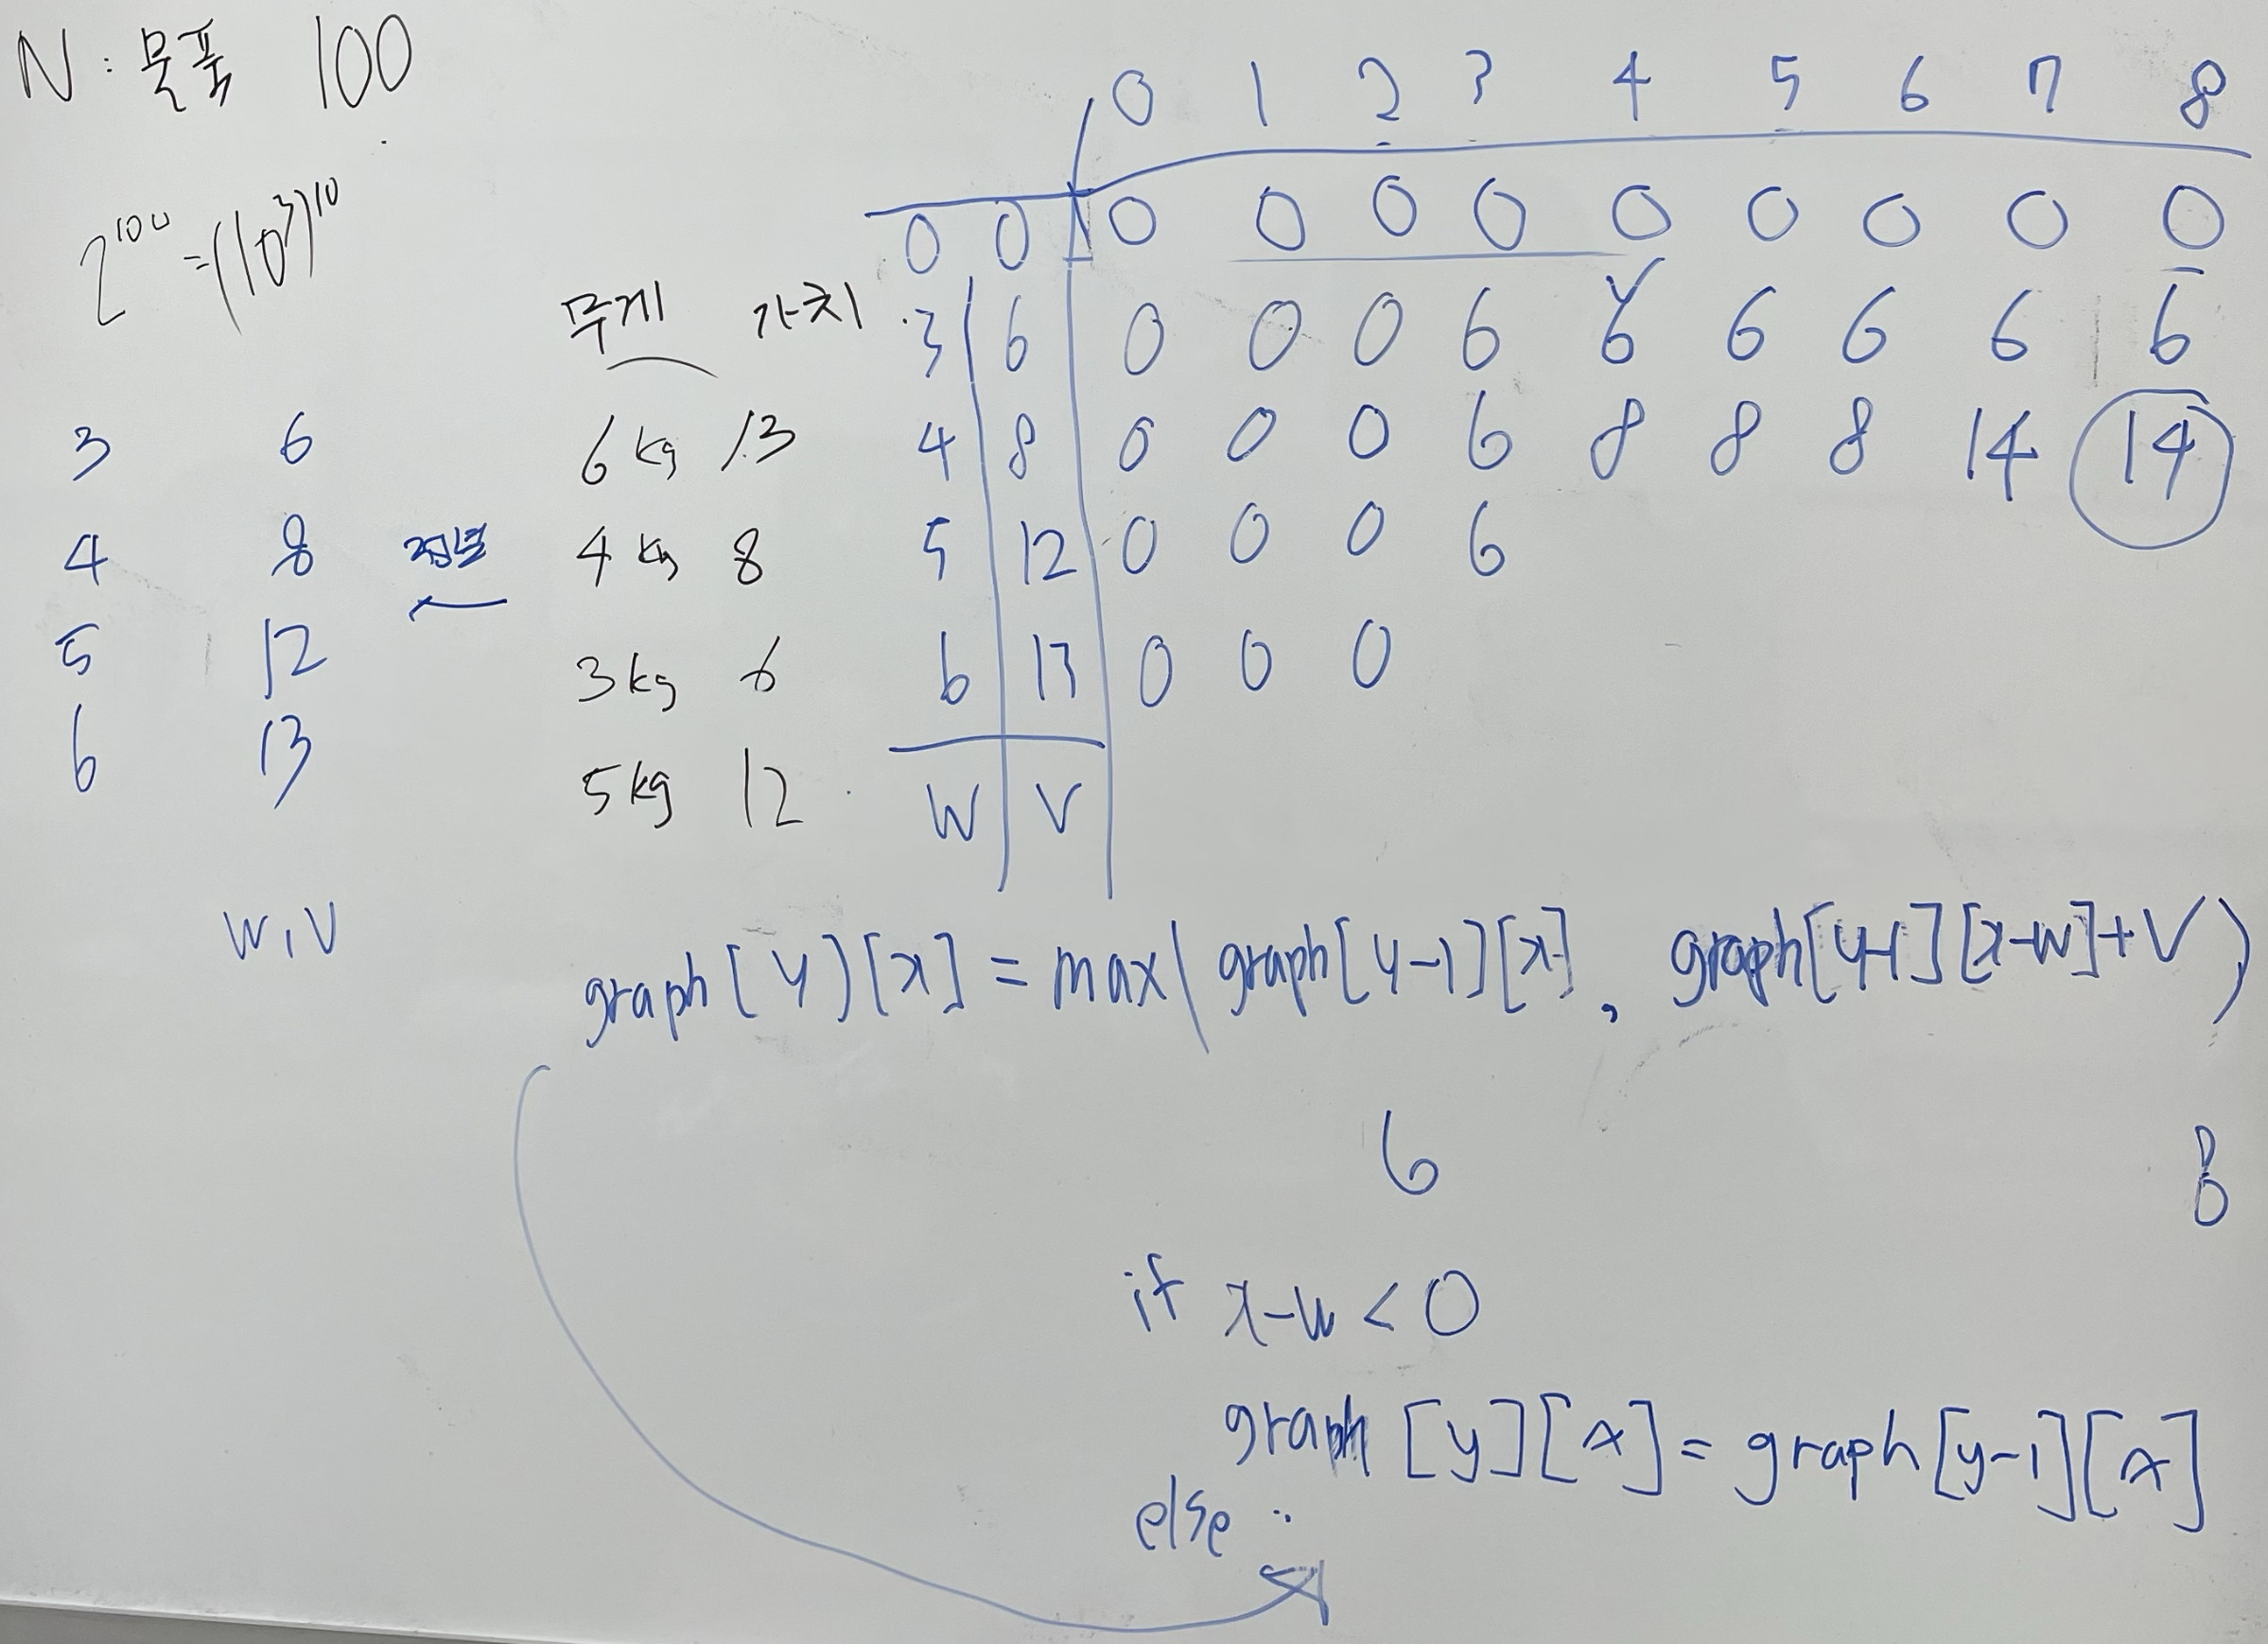 N : 물품 100
2^100 = (10^3)^10
3 6
4 8 정렬
5 12
6 13
W, V
무게 가치
6 kg 13
4 kg 8
3 kg 6
5 kg 12
0 1 2 3 4 5 6 7 8
0 0 0 0 0 0 0 0 0 0 0
3 6 0 0 0 6 6 6 6 6 6
4 8 0 0 0 6 8 8 8 14 14
5 12 0 0 0 6
6 13 0 0 0
W V
graph[y)[x] = max( graph[y-1][x], graph[y-1][x-w]+V )
6 8
if x-w < 0
graph [y][x] = graph[y-1][x]
else :